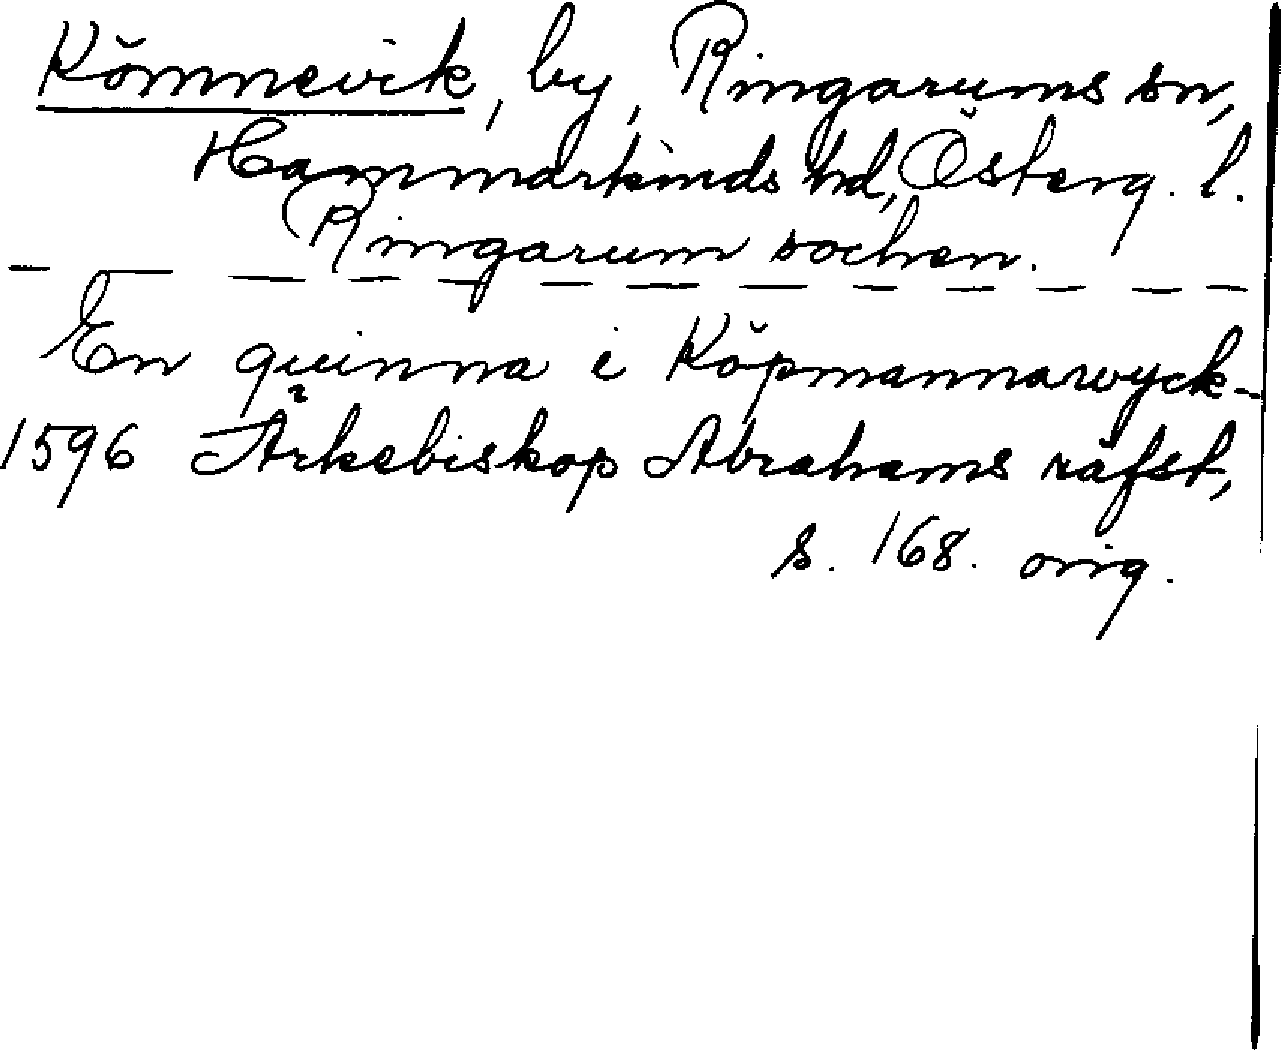 Kömnevik, by, Ringarums sn,
Hammarkinds hd, Österg. l.
Ringarum sochen.
En quinna i Köpmannawyck
1596 Ärkebiskop Abrahams räfst,
s. 168. orig.